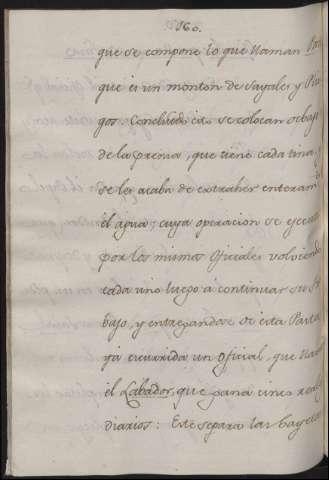 160.
que se compone lo que llaman
que es un monton de Sayales y
gos. Concluido esto se colocan debajo
de la prensa, que tiene cada tina, y
se les acaba de extraher enteram
el agua; cuya operacion se
por los mismos Oficiales volviendo
cada uno luego à continuar su
bajo, y entregandose de esta Porta
ya escurrida un oficial, que llam
el Labador, que gana cinco reale
diarios: Este separa las bayetas